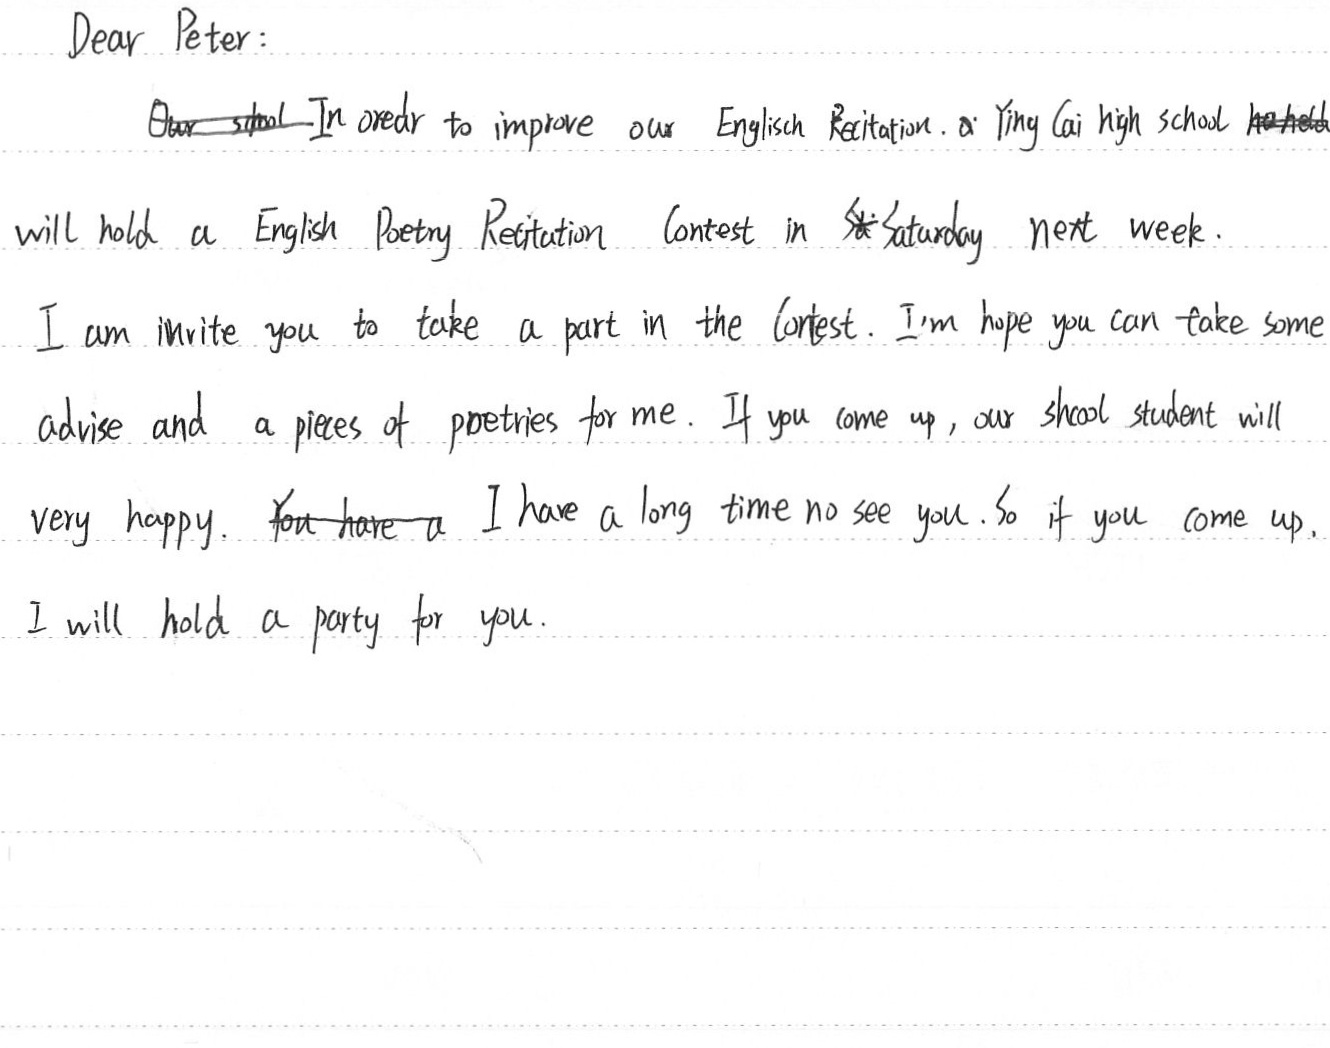 Dear Peter:
In oredr to improve our Englisch Recitation. a Ying Cai high school
will hold a English Poetry Recitation Contest in Saturday next week.
I am invite you to take a part in the Contest. I'm hope you can take some
advise and a pieces of poetries for me. If you come up, our shcool student will
very happy. I have a long time no see you. So if you come up,
I will hold a party for you.